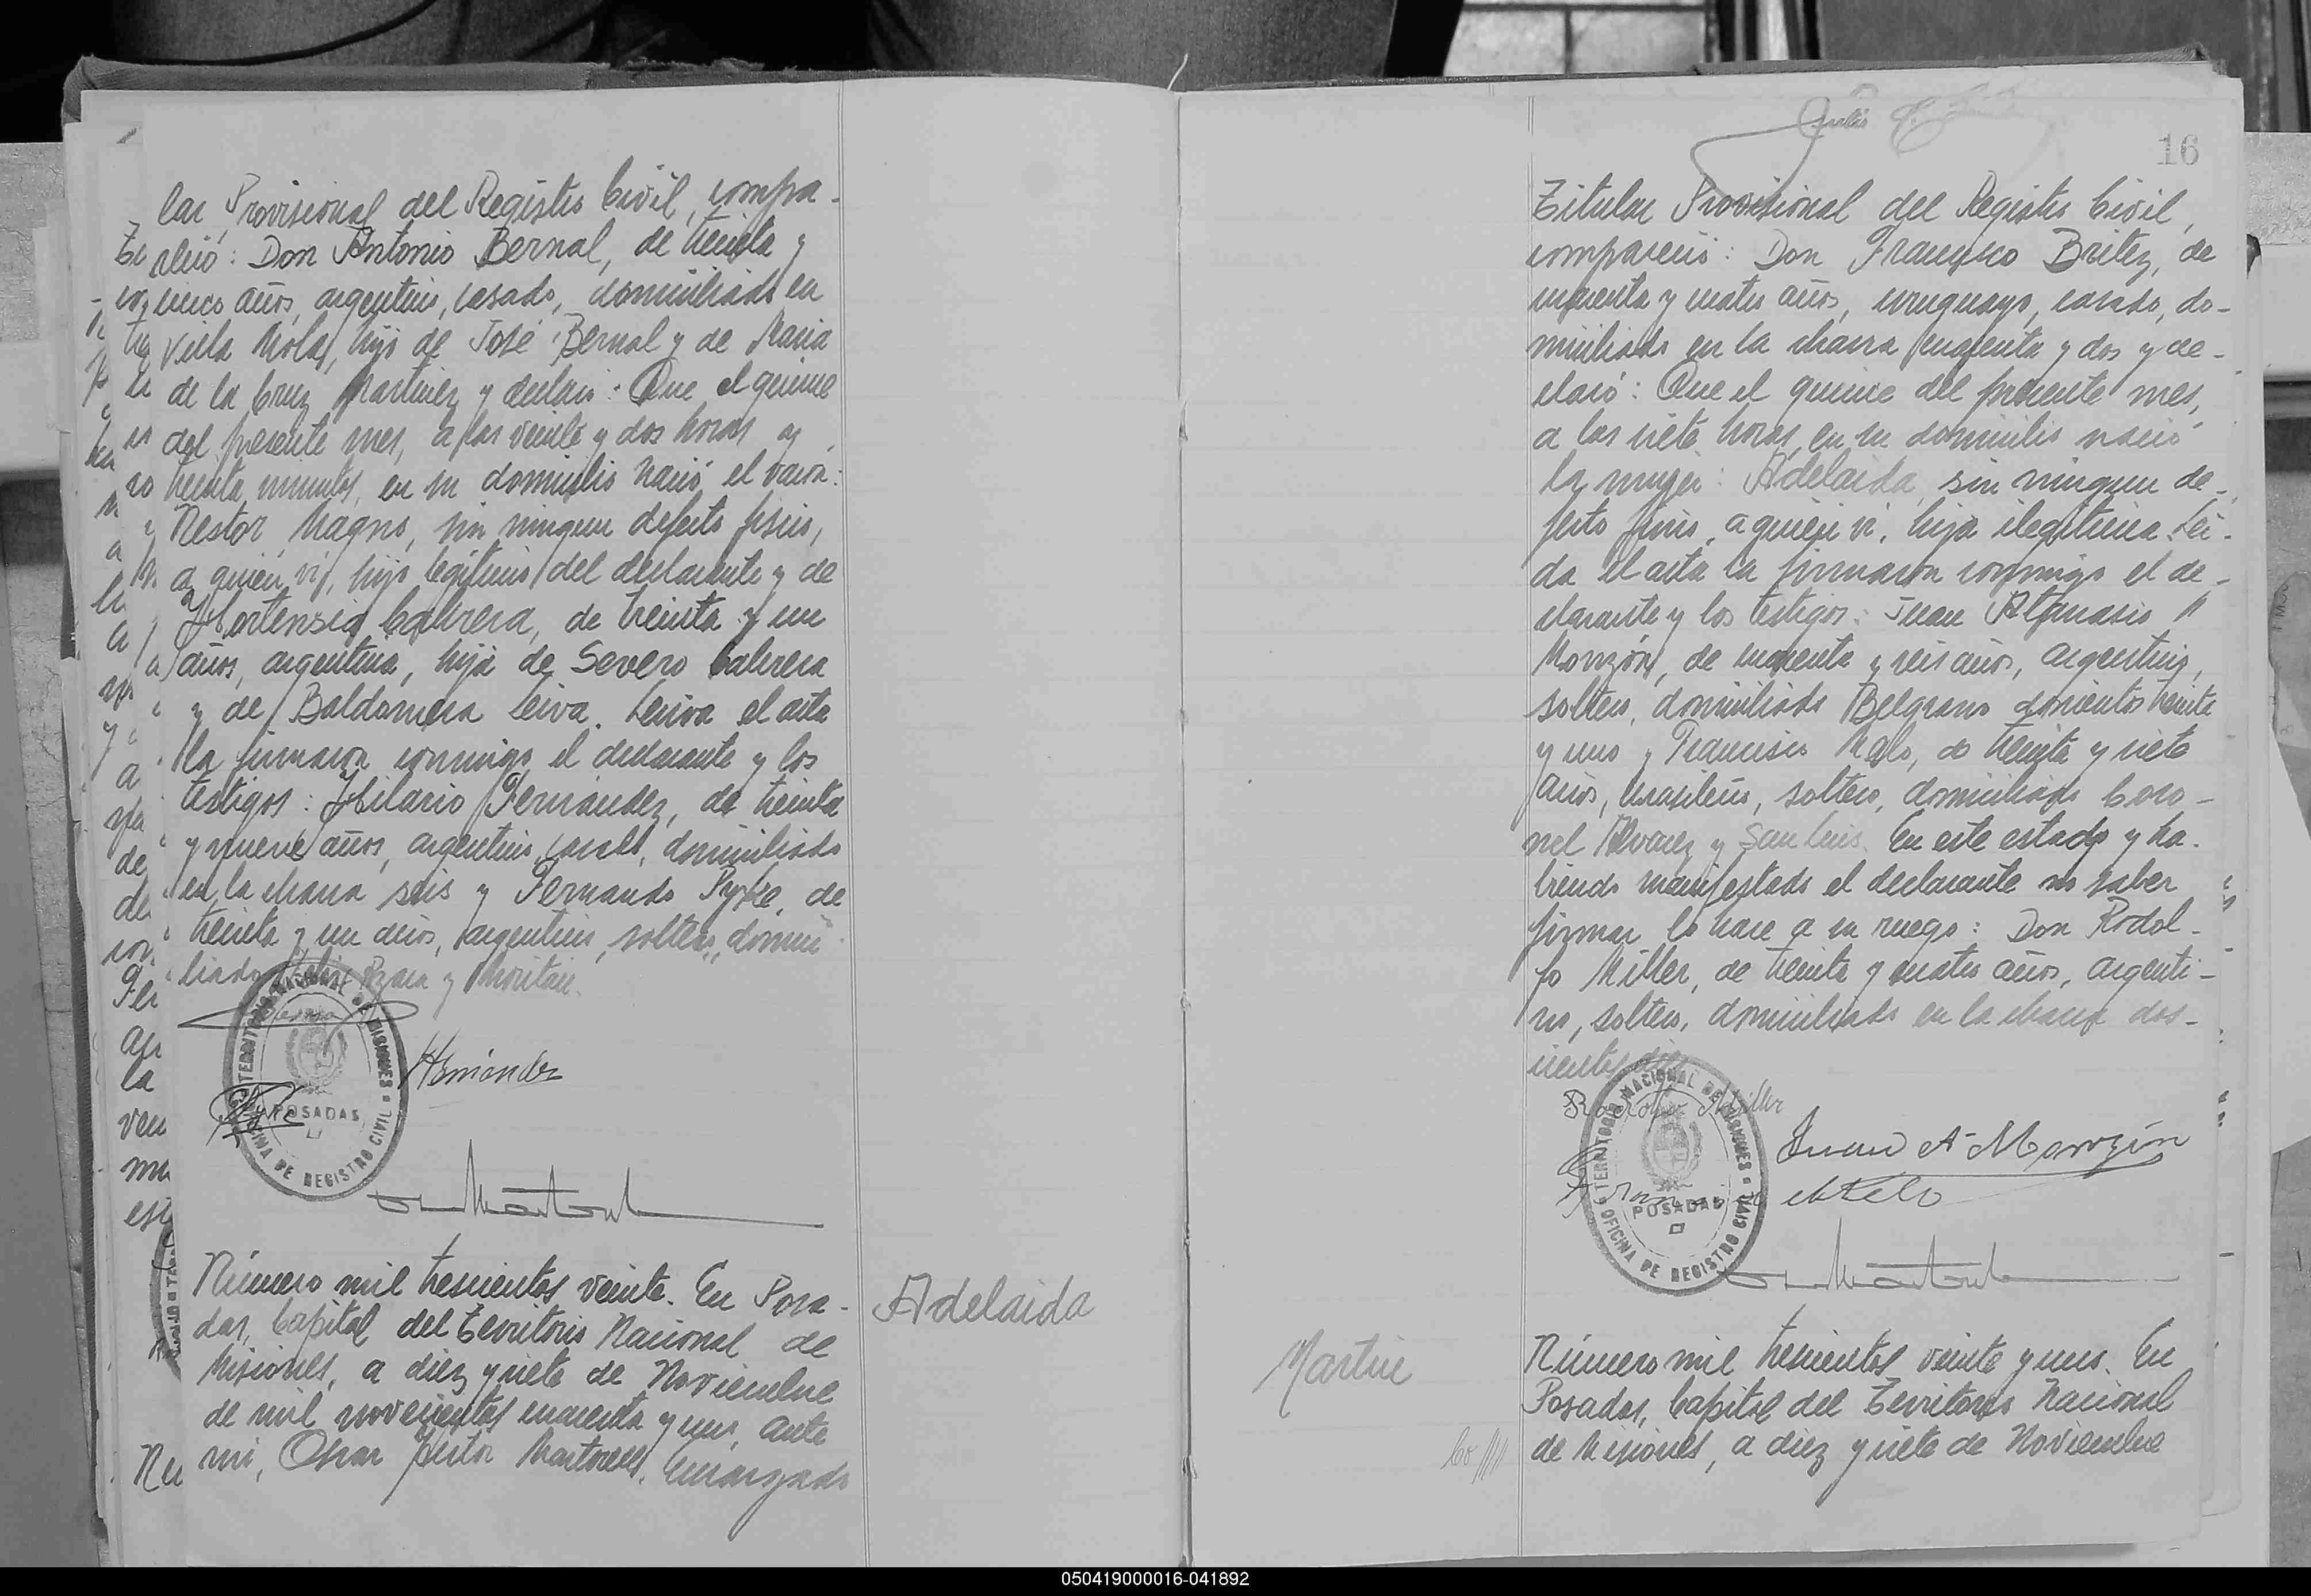 lar Provisional del Registro Civil, compa-
reció: Don Antonio Bernal, de treinta y
cinco años, argentino, casado, domiciliado en
Villa Molas, hijo de José Bernal y de Maria
de la Cruz Martinez y declaró: Que el quince
del presente mes, a las veinte y dos horas y
treinta minutos, en su domicilio nació el varón:
Nestor Magno, sin ningun defecto fisico,
a quien vi, hijo legitimo del declarante y de
Hortensia Cabrera, de treinta y un
años, argentina, hija de Severo Cabrera
y de Baldomera Leiva. Leida el acta
la firmaron conmigo el declarante y los
testigos: Hilario Fernández, de treinta
y nueve años, argentino, casado, domiciliado
en la chacra seis y Fernando Pyke, de
treinta y un años, argentino, soltero, domici-
liado Felix Azara y
TERRITORIO NACIONAL DE MISIONES
POSADAS
OFICINA DE REGISTRO CIVIL
Número mil trescientos veinte. En Posa-
das, Capital del Territorio Nacional de
Misiones, a diez y siete de Noviembre
de mil novecientos cuarenta y uno, ante
mi, Oscar Nestor Martorell, Encargado
Adelaida
16
Titular Provisional del Registro Civil,
compareció: Don Francisco Britez, de
cuarenta y cuatro años, uruguayo, casado, do-
miciliado en la chacra cuarenta y dos y de-
claró: Que el quince del presente mes,
a las siete horas, en su domicilio nació
la mujer: Adelaida, sin ningun de-
fecto fisico, a quien vi, hija ilegitima. Lei-
da el acta la firmaron conmigo el de-
clarante y los testigos: Juan Atanasio
Monzón, de cuarenta y seis años, argentino,
soltero, domiciliado Belgrano doscientos treinta
y uno y Francisco Melo, de treinta y siete
años, brasileño, soltero, domiciliado Coro-
nel Alvarez y San Luis. En este estado y ha-
biendo manifestado el declarante no saber
firmar lo hace a su ruego: Don Rodol-
fo Miller, de treinta y cuatro años, argenti-
no, soltero, domiciliado en la chacra dos-
cientos diez
Rodolfo Miller
Juan A Monzón
Francisco Melo
TERRITORIO NACIONAL DE MISIONES
POSADAS
OFICINA DE REGISTRO CIVIL
Martin
Número mil trescientos veinte y uno. En
Posadas, Capital del Territorio Nacional
de Misiones, a diez y siete de Noviembre
050419000016-041892